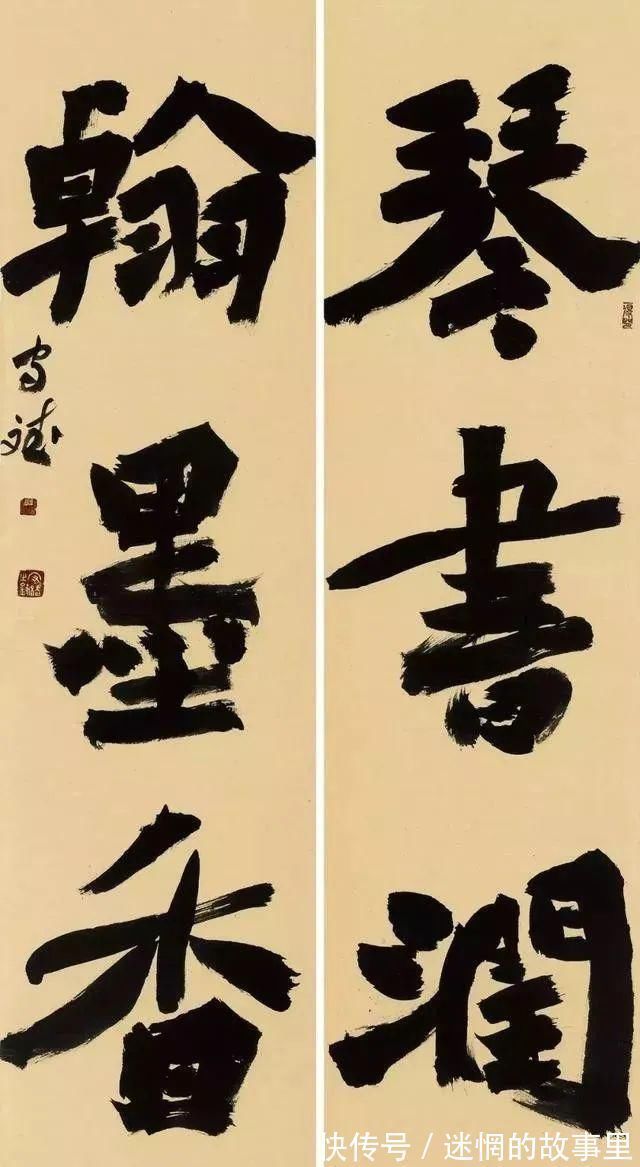 琴書潤
翰墨香
快传号 / 迷惘的故事里